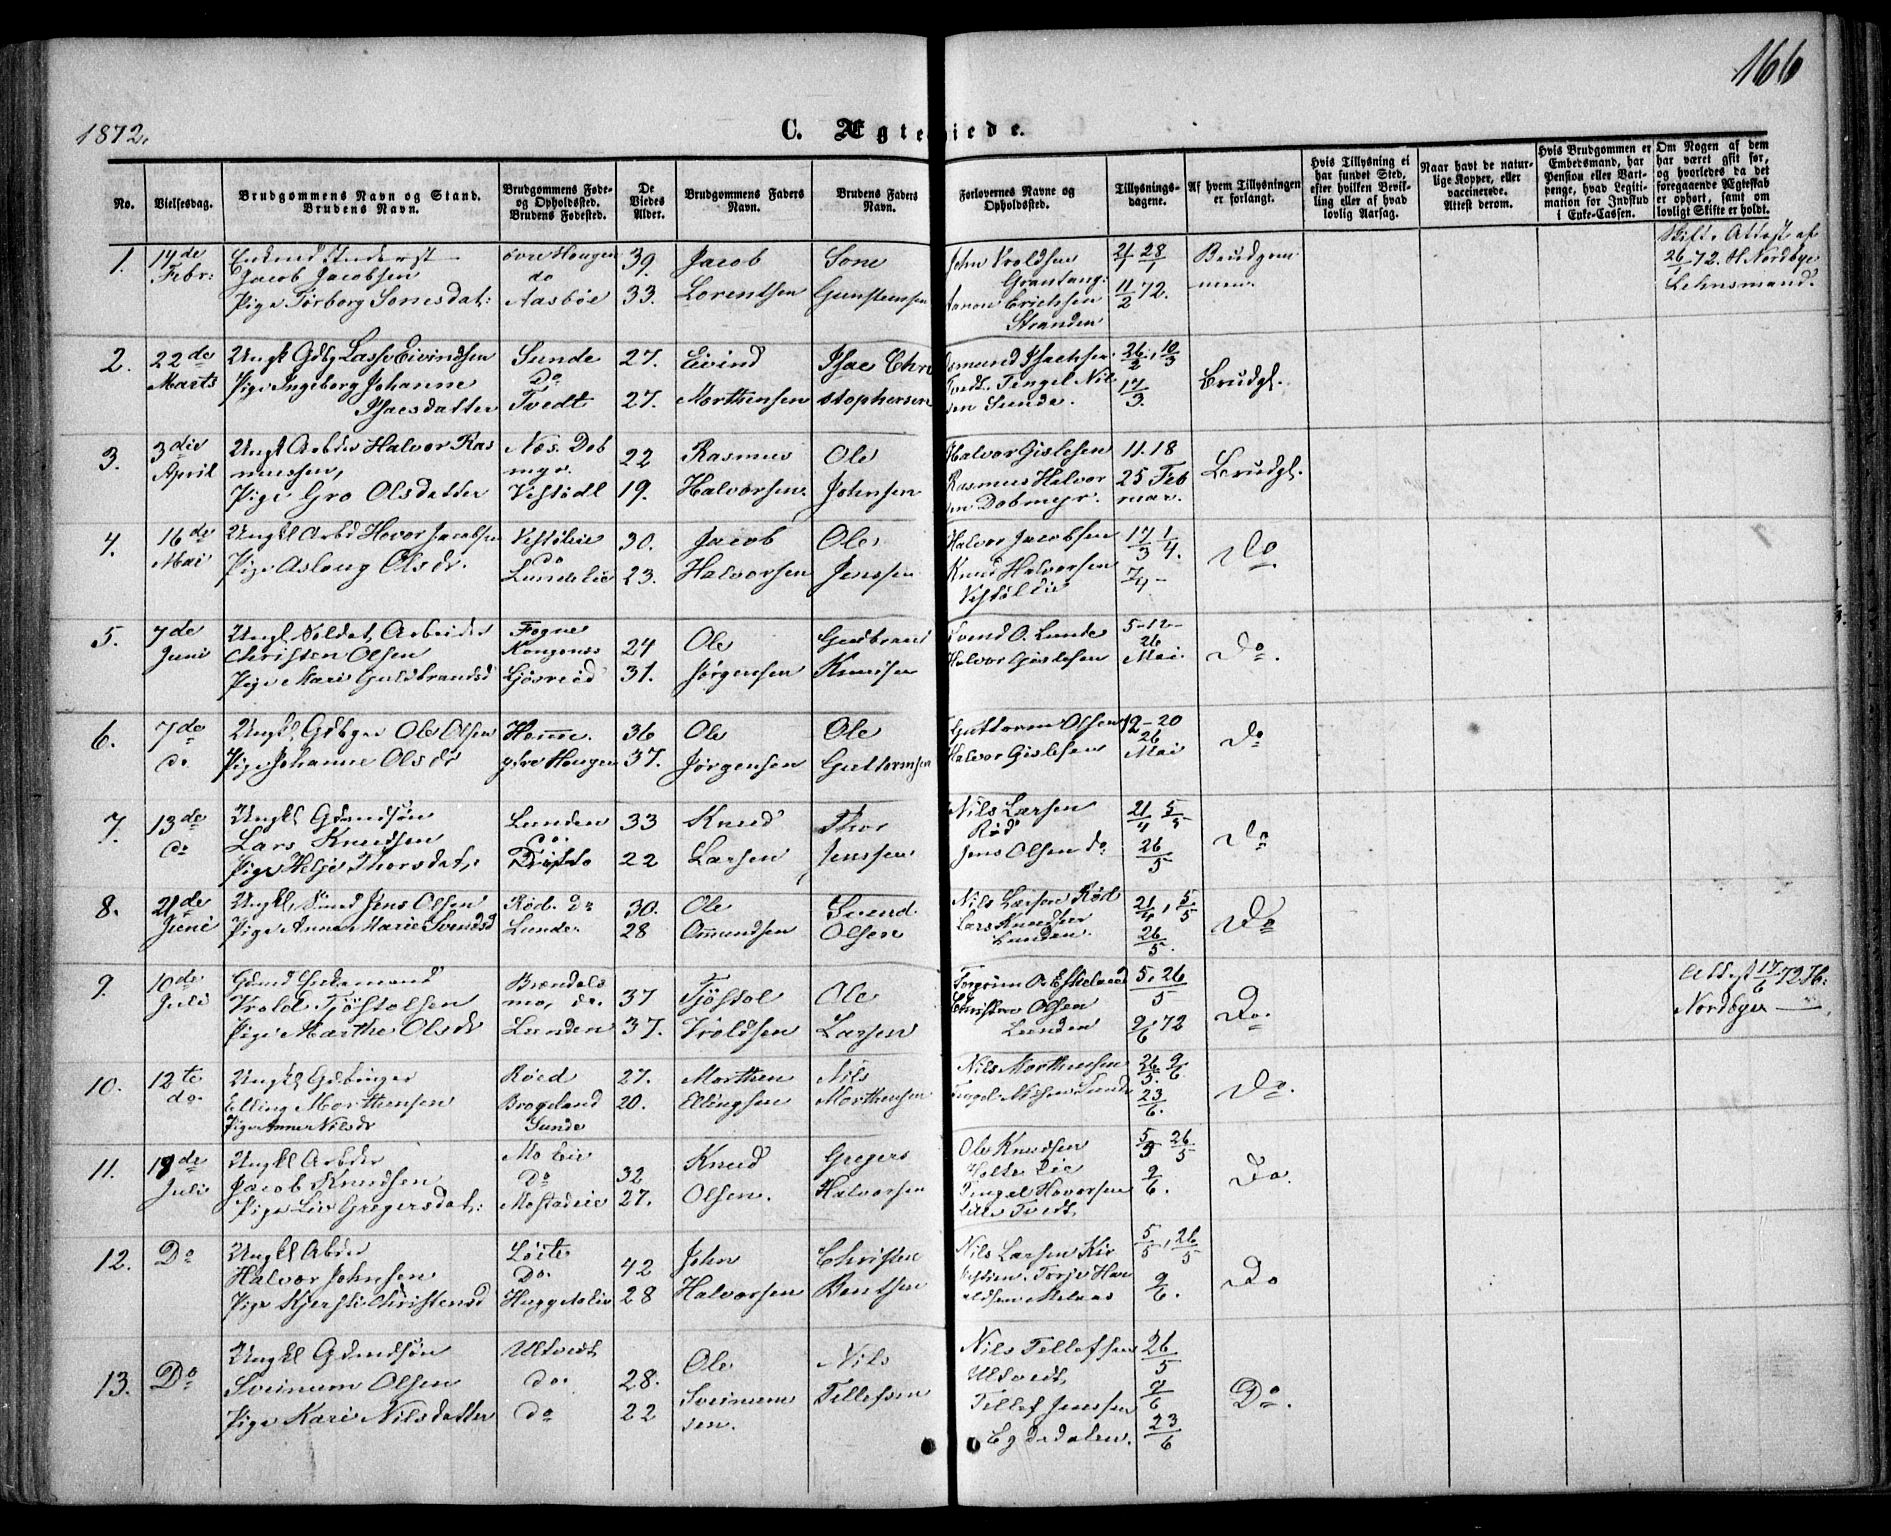 166
1872.
C. Ægteviede.
No.
Vielsesdag.
Brudgommens Navn og Stand.
Brudens Navn.
Brudgommens Føde-
og Opholdssted.
Brudens Fødested.
De
Viedes
Alder.
Brudgommens Faders
Navn.
Brudens Faders
Navn.
Forlovernes Navne og
Opholdssted.
Tillysnings-
dagene.
Af hvem Tillysningen
er forlangt.
Hvis Tillysning ei
har fundet Sted,
efter hvilken Bevil-
ling eller af hvad
lovlig Aarsag.
Naar havt de natur-
lige Kopper, eller
vaccinerede.
Attest derom.
Hvis Brudgommen er
Embedsmand, har
Pension eller Vart-
penge, hvad Legiti-
mation for Indskud
i Enke-Cassen.
Om Nogen af dem
har været gift før,
og hvorledes da det
foregaaende Ægteskab
er ophørt, samt om
lovligt Skifte er holdt.
1. 14de Febr:
Jacob Jacobsen
Pige Torborg Sonesdat:
øvre Hougen
do
Aasbøe
39.
33.
Jacob
Lorentsen
Sone
Gunstensen
John Vroldsen
Grantang.
Aanon Erichsen
Stranden
21/1 28/1
11/2 72.
Brudgom
men.
Skifte Attest af
26/1 72. H. Nordbye
Lehnsmand.
2. 22de Marts
Ungk Gdbg Lasse Eivindsen
Pige Ingeborg Johanne
Isacsdatter
Sunde
Do
Tvedt
27.
27.
Eivind
Morthensen
Isac Chri
stophersen
Osmund Isachsen
Tvedt. Tengel Nil
sen Sunde.
26/2, 10/3
17/3.
Brudg.
3. 3die April
Ungk Arbder Halvor Ras
mussen,
Pige Gro Olsdatter
Næs. Dob
myr.
Vestødl
22
19.
Rasmus
Halvorsen.
Ole
Johnsen
Halvor Gislesen
Rasmus Halvor
sen Dobmyr.
11. 18
25 Feb
ruar.
Brudg.
4. 16de Mai
Ungkl Arbd Hovor Jacobsen
Pige Aslaug Olsdr.
Vestøleie
do
Lundeeie
30.
23.
Jacob
Halvorsen
Ole
Jenssen
Halvor Jacobsen
Knud Halvorsen
17/3 1/4.
7/4 -
Do
5. 7de Juni
Ungkl. Soldat, Arbeider
Christen Olsen
Pige Mari Guldbrandsd
Fogne
Ljøsreød
24
31.
Ole
Jørgensen
Gudbrand
Knudsen
Svend O. Lunde
Halvor Gislesen
5-12-
26
Mai.
Do.
6. 7de do
Ungkl. Gdbger Ole Olsen
Pige Johanne Olsdr
Homme.
øvre Hougen
36
37.
Ole
Jørgensen
Ole
Guttormsen
Guttorm Olsen
Halvor Gislesen
12-20
26
Mai
Do
7. 13de do
Ungkl Gdmdsøn
Lars Knudsen
Pige Helje Thorsdat:
Lunden
do
33
22
Knud
Larsen
Thor
Jenssen
Nils Larsen
Rød
Jens Olsen do
21/4 5/5
26/5
Do
8. 21de Juni
Ungkl. Jens Olsen
Pige Anne Marie Svendsd
Rød. Do
Lunde.
30.
28
Ole
Ommundsen
Svend
Olsen
Nils Larsen Rød
Lars Knudsen
Lunden.
21/4, 5/5
26/5.
Do
9. 10de Juli
Gdmd Enkemand
Vrold Tjøstolsen
Pige Marthe Olsdr
Brændals
mo, do.
Lunden
37
37.
Tjøstol
Vroldsen
Ole
Larsen
Torgrim O. Eskeland
Christen Olsen
Lunden
5. 26/5
9/6 72
Do.
Attest 17/6 72 H:
Nordbye
10. 12te do.
Ungkl Gdbruger
Elling Morthensen
Pige Anne Nilsdr
Røed
Brogeland
Sunde
27.
20.
Morthen
Ellingsen
Nils
Morthensen
Nils Morthensen
Tengel Nilsen Sunde
26/5. 9/6
23/6.
Do.
11. 19de Juli
Ungkl Arbder
Jacob Knudsen
Pige Liv Gregersdat:
Mo Eie
Do
Mostadeie
32
27.
Knud
Olsen.
Gregers
Halvorsen
Ole Knudsen
Holte Eie
Tengel Hovorsen
Lille Tvedt,
5/5 26/5
9/6.
Do.
12. Do
Ungkl Abder
Halvor Johnsen
Pige Kjersti Christensd
Løite
Do.
42
28
John
Halvorsen
Christen
Bentsen
Nils Larsen Kir
5/5, 26/5
9/6.
Do
13. Do
Ungkl Gdmdsøn
Sveinum Olsen
Pige Kari Nilsdatter
Ultvedt
do.
do
28.
22
Ole
Sveinum
sen.
Nils
Tellefsen
Nils Tellefsen
Ultvedt,
Tellef Jenssen
Egdedalen.
26/5
9/6
23/6
Do.